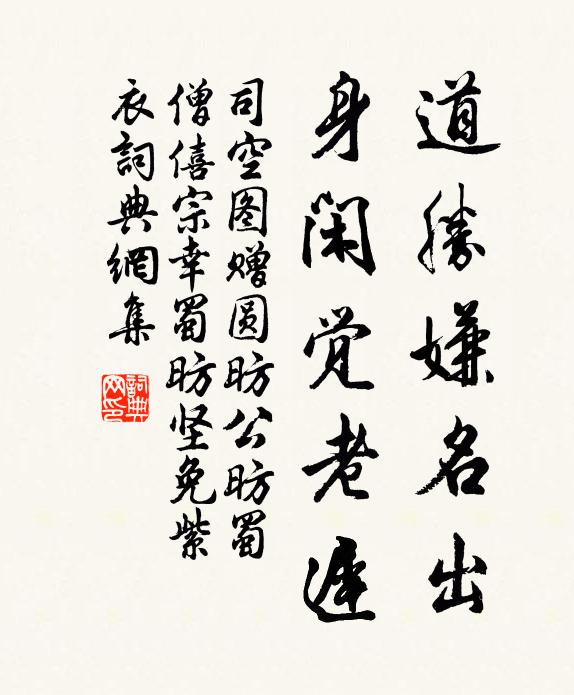 道勝嫌名出
身閑覚老遲
司空图赠圆昉公昉蜀
僧僖宗幸蜀昉坚免紫
衣詞典網集
詞典网印